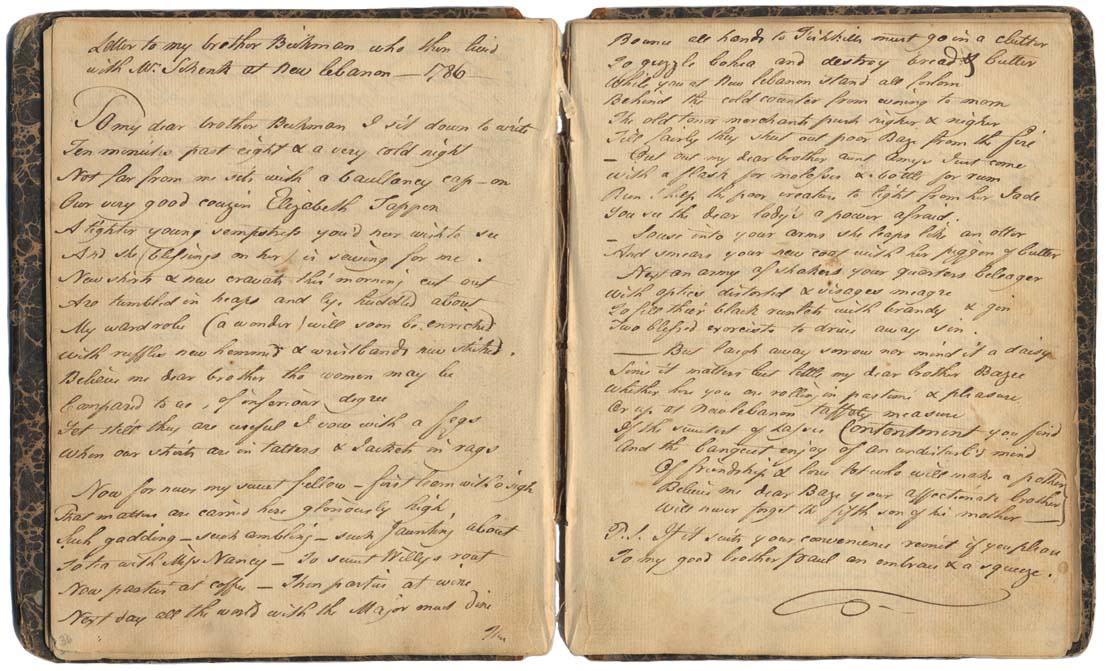 Letter to my brother Beekman who then lived
with Mr. Schenk at New lebanon – 1786
To my dear brother Beekman I sit down to write
Ten minutes past eight & a very cold night
Not far from me sits with a baullancy cap – on
Our very good cousin Elizabeth Tappen
A tighter young sempstress you'd neer wish to see
And she (blessings on her) is sewing for me.
New shirts & new cravats this morning cut out
Are tumbled in heaps and lye huddled about
My wardrobe (a wonder) will soon be enriched
With ruffles new hemmed & wristbands new stitched.
Believe me dear brother tho women may be
Compared to us, of inferiour degree
Yet still they are useful I vow with a fegs
When our shirts are in tatters & Jackets in rags
Now for news my sweet fellow – first learn with a sigh
That matters are carried here gloriously high
Such gadding – such ambling – such jaunting about
To tea with Miss Nancy – To sweet Willy's rout
New parties at coffee – Then parties at wine
Next day all the world with the Major must dine
Then
36
Bounce all hands to Fishkill must go in a clutter
To guzzle bohea and destroy bread & butter
While you at New lebanon stand all forlorn
Behind the cold counter from evening to morn
The old tenor merchants push nigher & nigher
Till fairly they shut out poor Baze from the fire
– Out out my dear brother aunt Amy's Just come
With a flask for molasses & a bottle for rum
Run! help the poor creature to light from her Jade
You see the dear lady's a power afraid.
– Souse into your arms she leaps like an otter
And smears your new coat with her piggin of butter
Next an army of shakers your quarters beleager
With optics distorted & visages meagre
To fill their black runlets with brandy & gin
Two blessed exorcists to drive away sin.
– But laugh away sorrow nor mind it a daisy
Since it matters but little my dear brother Bazee
Whether here you are rolling in pastime & pleasure
Or up at New lebanon taffety measure
If the sweetest of Lasses Contentment you find
And the banquet enjoy of an undisturb'd mind
Of friendship & love let who will make a pother
Believe me dear Baze your affectionate brother
Will never forget the fifth son of his mother –
P.S. If it suits your convenience remit if you please
To my good brother Paul an embrace & a squeeze.